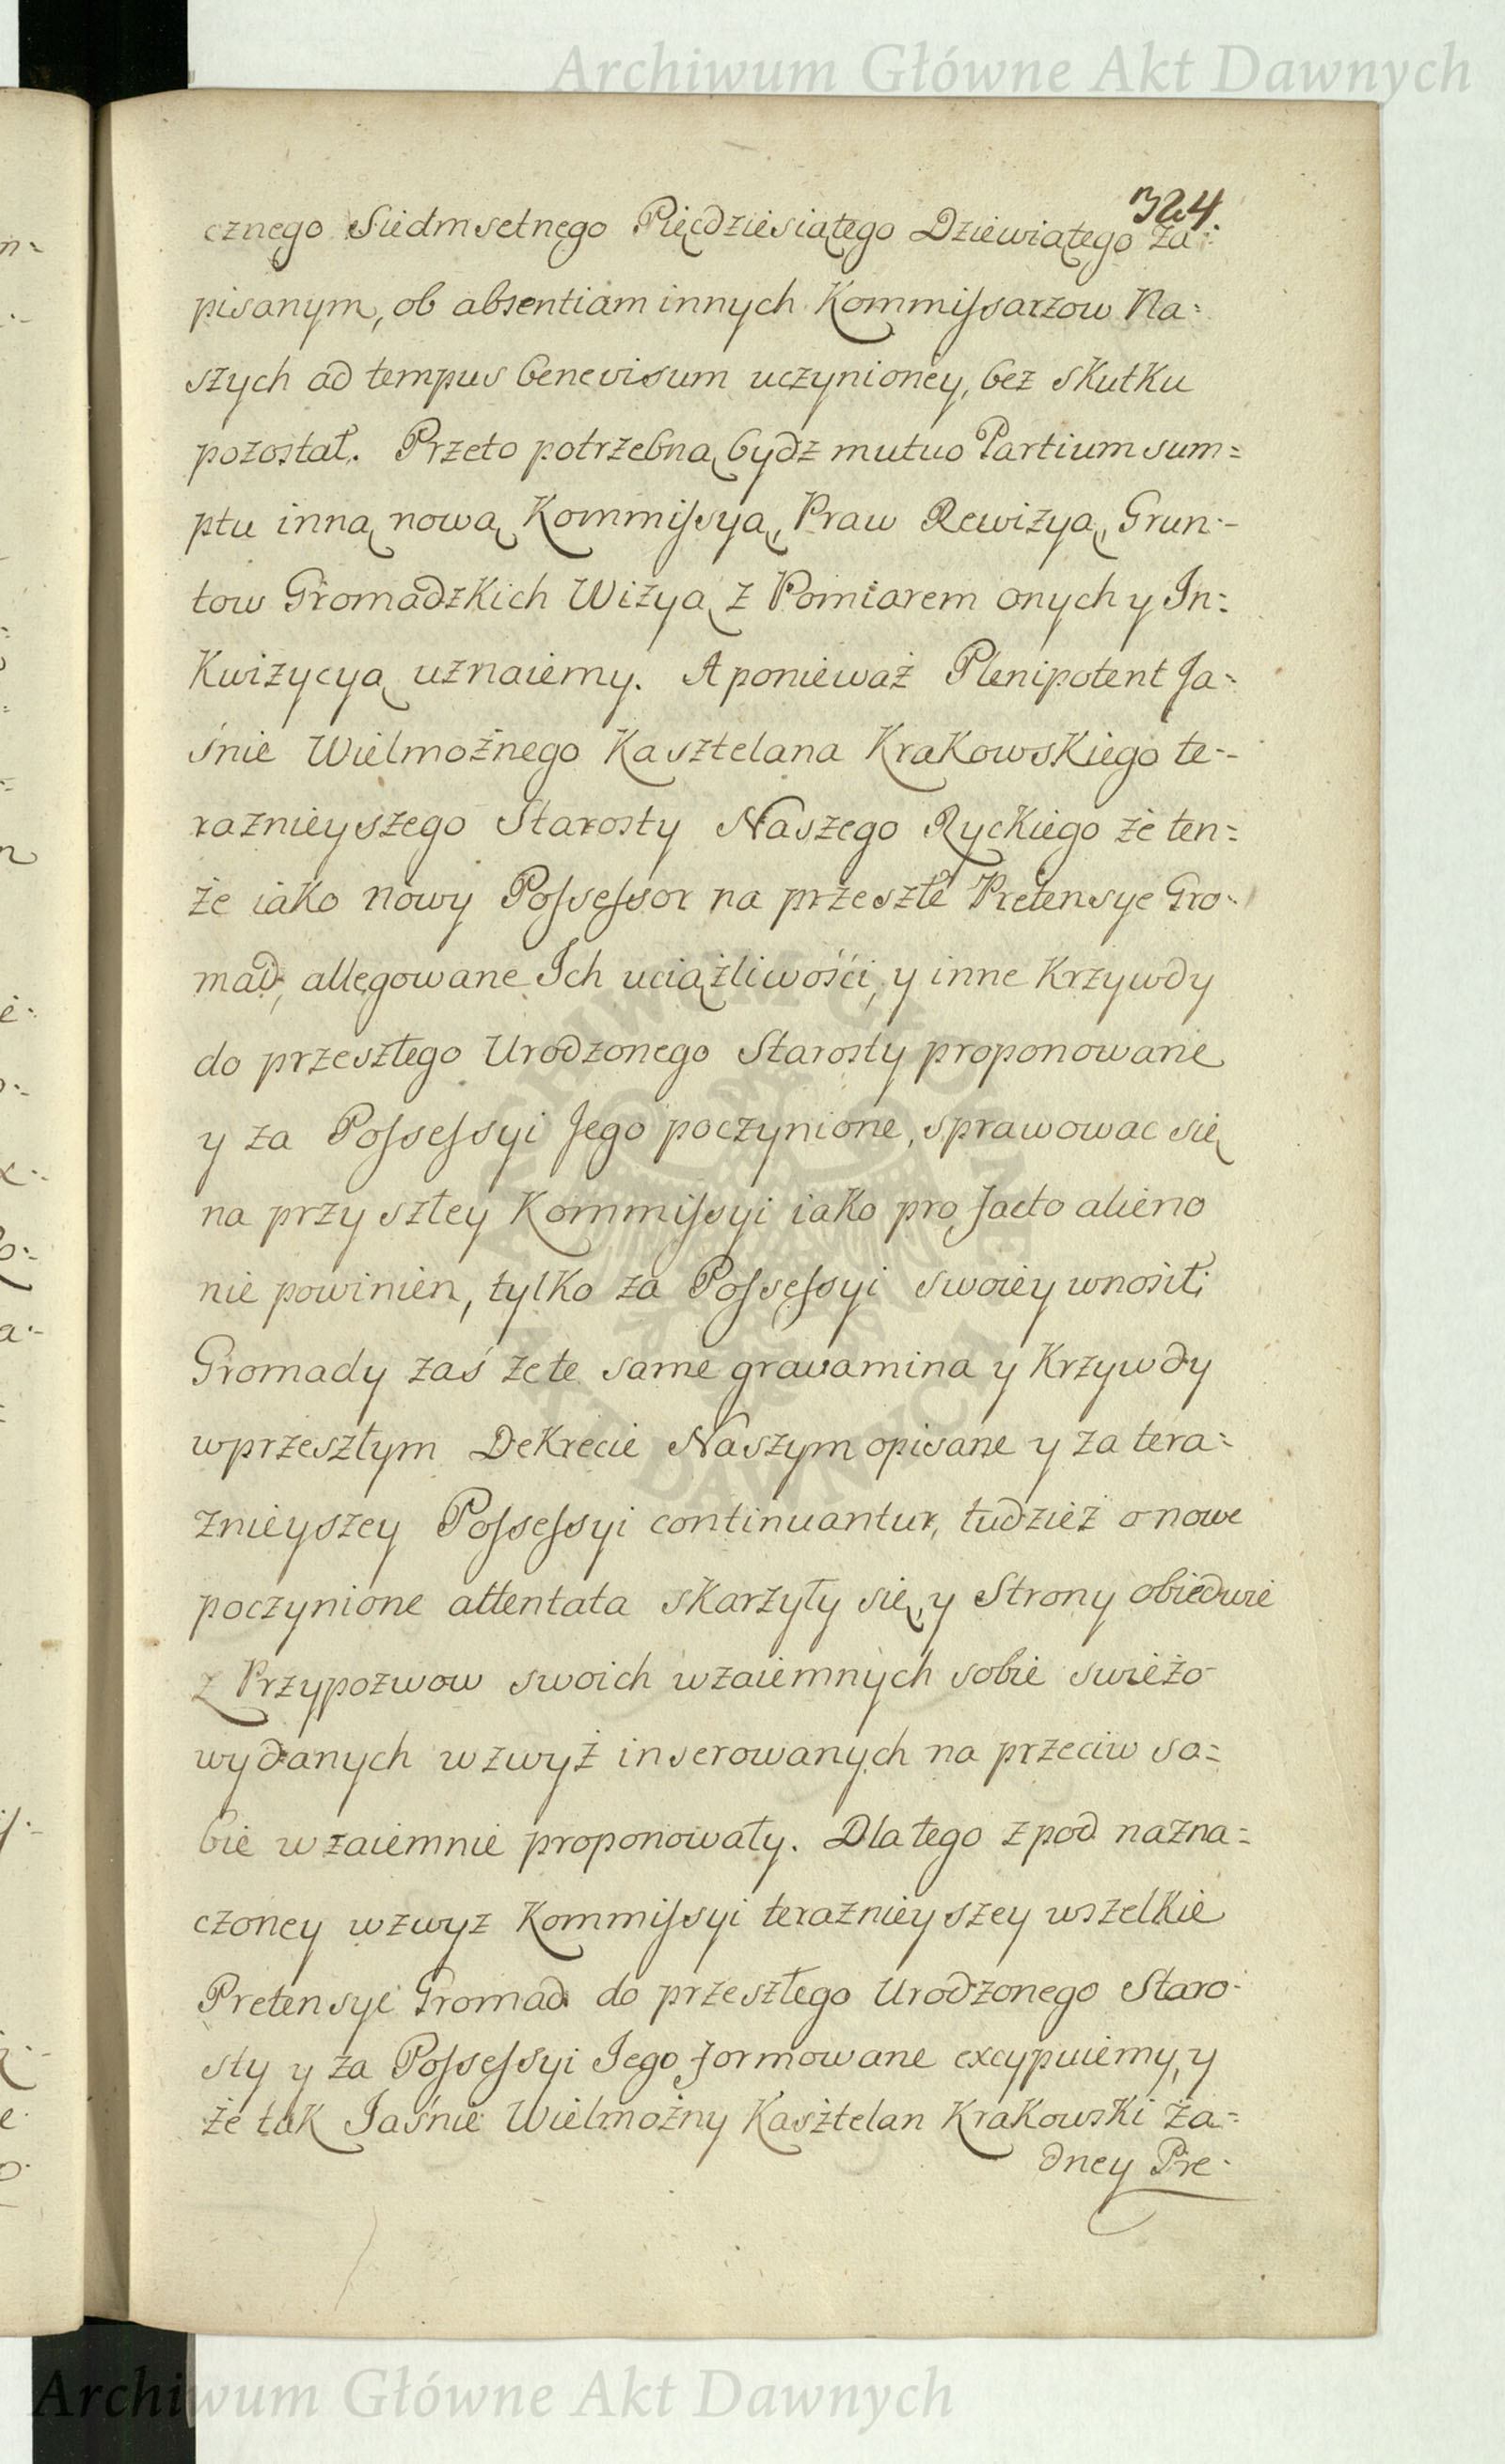 Archiwum Główne Akt Dawnych
324.
cznego Siedmsetnego Pięcdziesiątego Dziewiątego za:
pisanym, ob absentiam innych Kommissarzow Na:
szych ad tempus benevisum uczynioney, bez skutku
pozostał. Przeto potrzebną bydz mutuo Partium sum=
ptu inną nową Kommissyą, Praw Rewizyą, Grun:-
tow Gromadzkich Wizyą z Pomiarem onych y In:
Kwizycyą uznaiemy. A ponieważ Plenipotent Ja:
śnie Wielmożnego Kasztelana Krakowskiego te:-
raznieyszego Starosty Naszego Ryckiego że ten:
że iako nowy Possessor na przeszłe Pretensye Gro:
mad, allegowane Ich uciążliwości, y inne Krzywdy
do przeszłego Urodzonego Starosty proponowane
y za Possessyi Jego poczynione, sprawowac się
na przyszłey Kommissyi iako pro facto alieno
nie powinien, tylko za Possessyi swoiey wnosił;
Gromady zaś że te same gravamina y Krzywdy
w przeszłym Dekrecie Naszym opisane y za tera:
znieyszey Possessyi continuantur, tudzież o nowe
poczynione attentata skarżyły się, y Strony obiedwie
z Przypozwow swoich wzaiemnych sobie swieżo
wydanych wzwyż inserowanych na przeciw so=
bie wzaiemnie proponowały. Dla tego z pod nazna=
czoney wzwyż Kommissyi teraznieyszey wszelkie
Pretensye Gromad do przeszłego Urodzonego Staro:
sty y za Possessyi Jego formowane excypuiemy, y
że tak Jaśnie Wielmożny Kasztelan Krakowski ża:
dney Pre:
ARCHIWUM GŁÓWNE
AKT DAWNYCH
Archiwum Główne Akt Dawnych